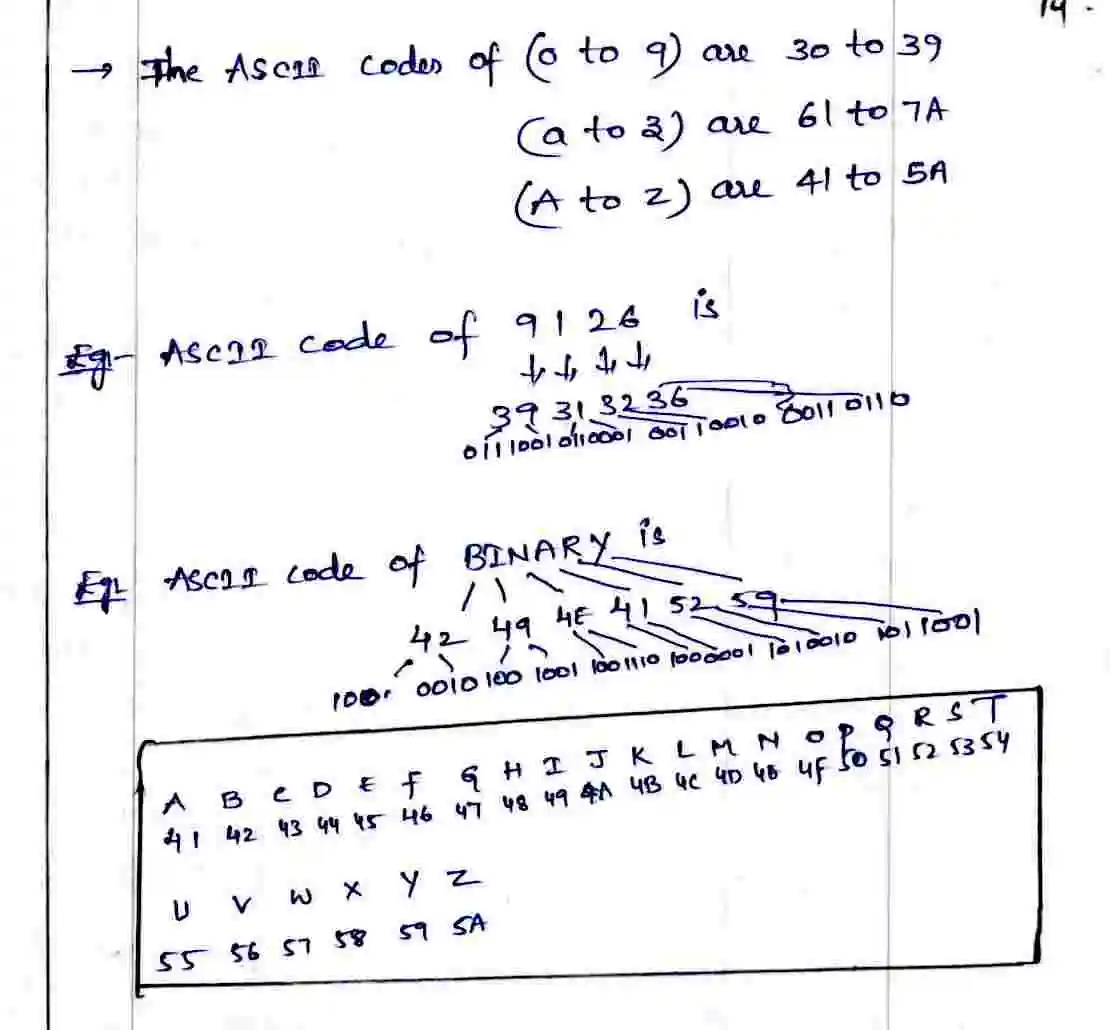 14.
→ The ASCII codes of (0 to 9) are 30 to 39
(a to z) are 61 to 7A
(A to Z) are 41 to 5A
Eg:- ASCII code of 9126 is
39 31 32 36
0111001 0110001 00110010 00110110
Eg:- ASCII code of BINARY is
42 49 4E 41 52 59
100 0010 100 1001 1001110 1000001 1010010 1011001
A B C D E F G H I J K L M N O P Q R S T
41 42 43 44 45 46 47 48 49 4A 4B 4C 4D 4E 4F 50 51 52 53 54
U V W X Y Z
55 56 57 58 59 5A